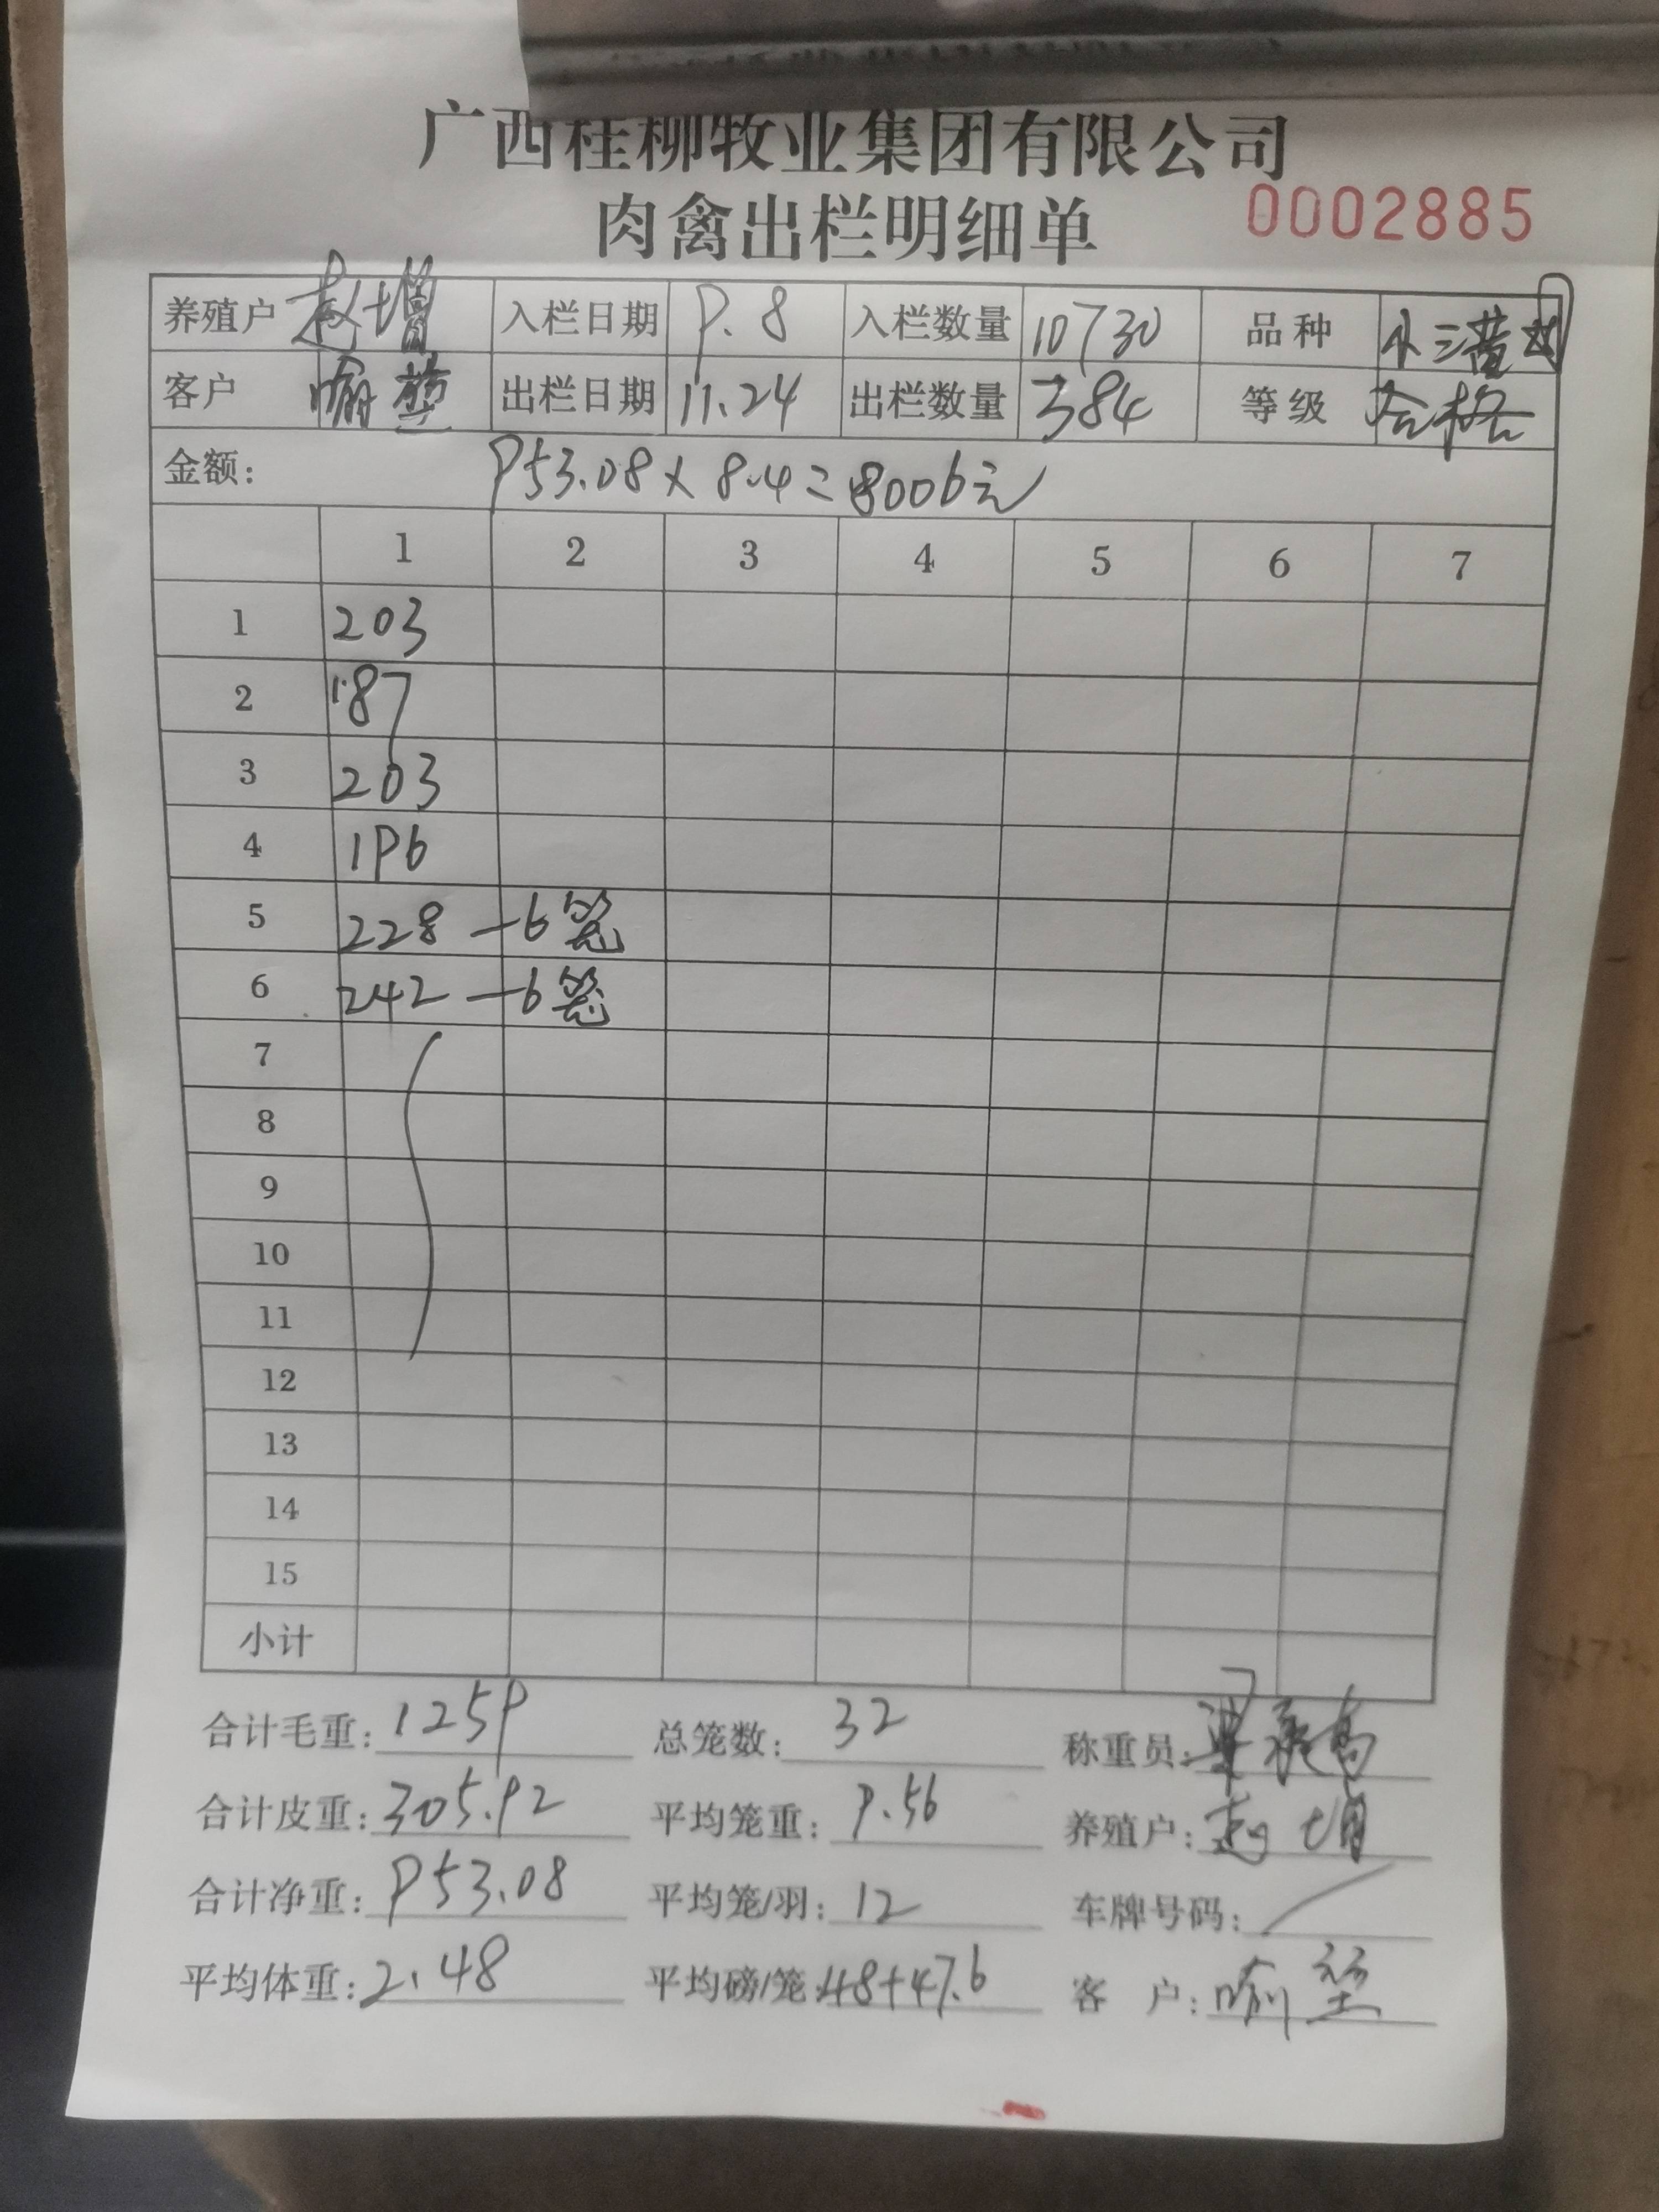 广西桂柳牧业集团有限公司
肉禽出栏明细单 0002885
养殖户 赵增 入栏日期 9.8 入栏数量 10730 品种 小三黄
客户 出栏日期 11.24 出栏数量 384 等级 合格
金额: 953.08×8.4=8006元
1 2 3 4 5 6 7
1 203
2 187
3 203
4 196
5 228 —6笼
6 242 —6笼
7
8
9
10
11
12
13
14
15
小计
合计毛重: 1259 总笼数: 32 称重员:
合计皮重: 305.92 平均笼重: 9.56 养殖户: 赵增
合计净重: 953.08 平均笼/羽: 12 车牌号码: /
平均体重: 2.48 平均磅/笼: 48+47.6 客 户: